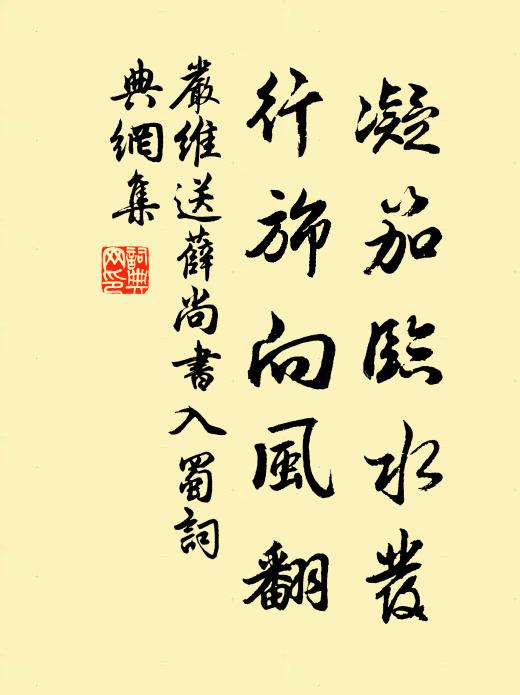 凝笳臨水發
行旆向風翻
嚴維送薛尚書入蜀詞
典網集
詞典網印